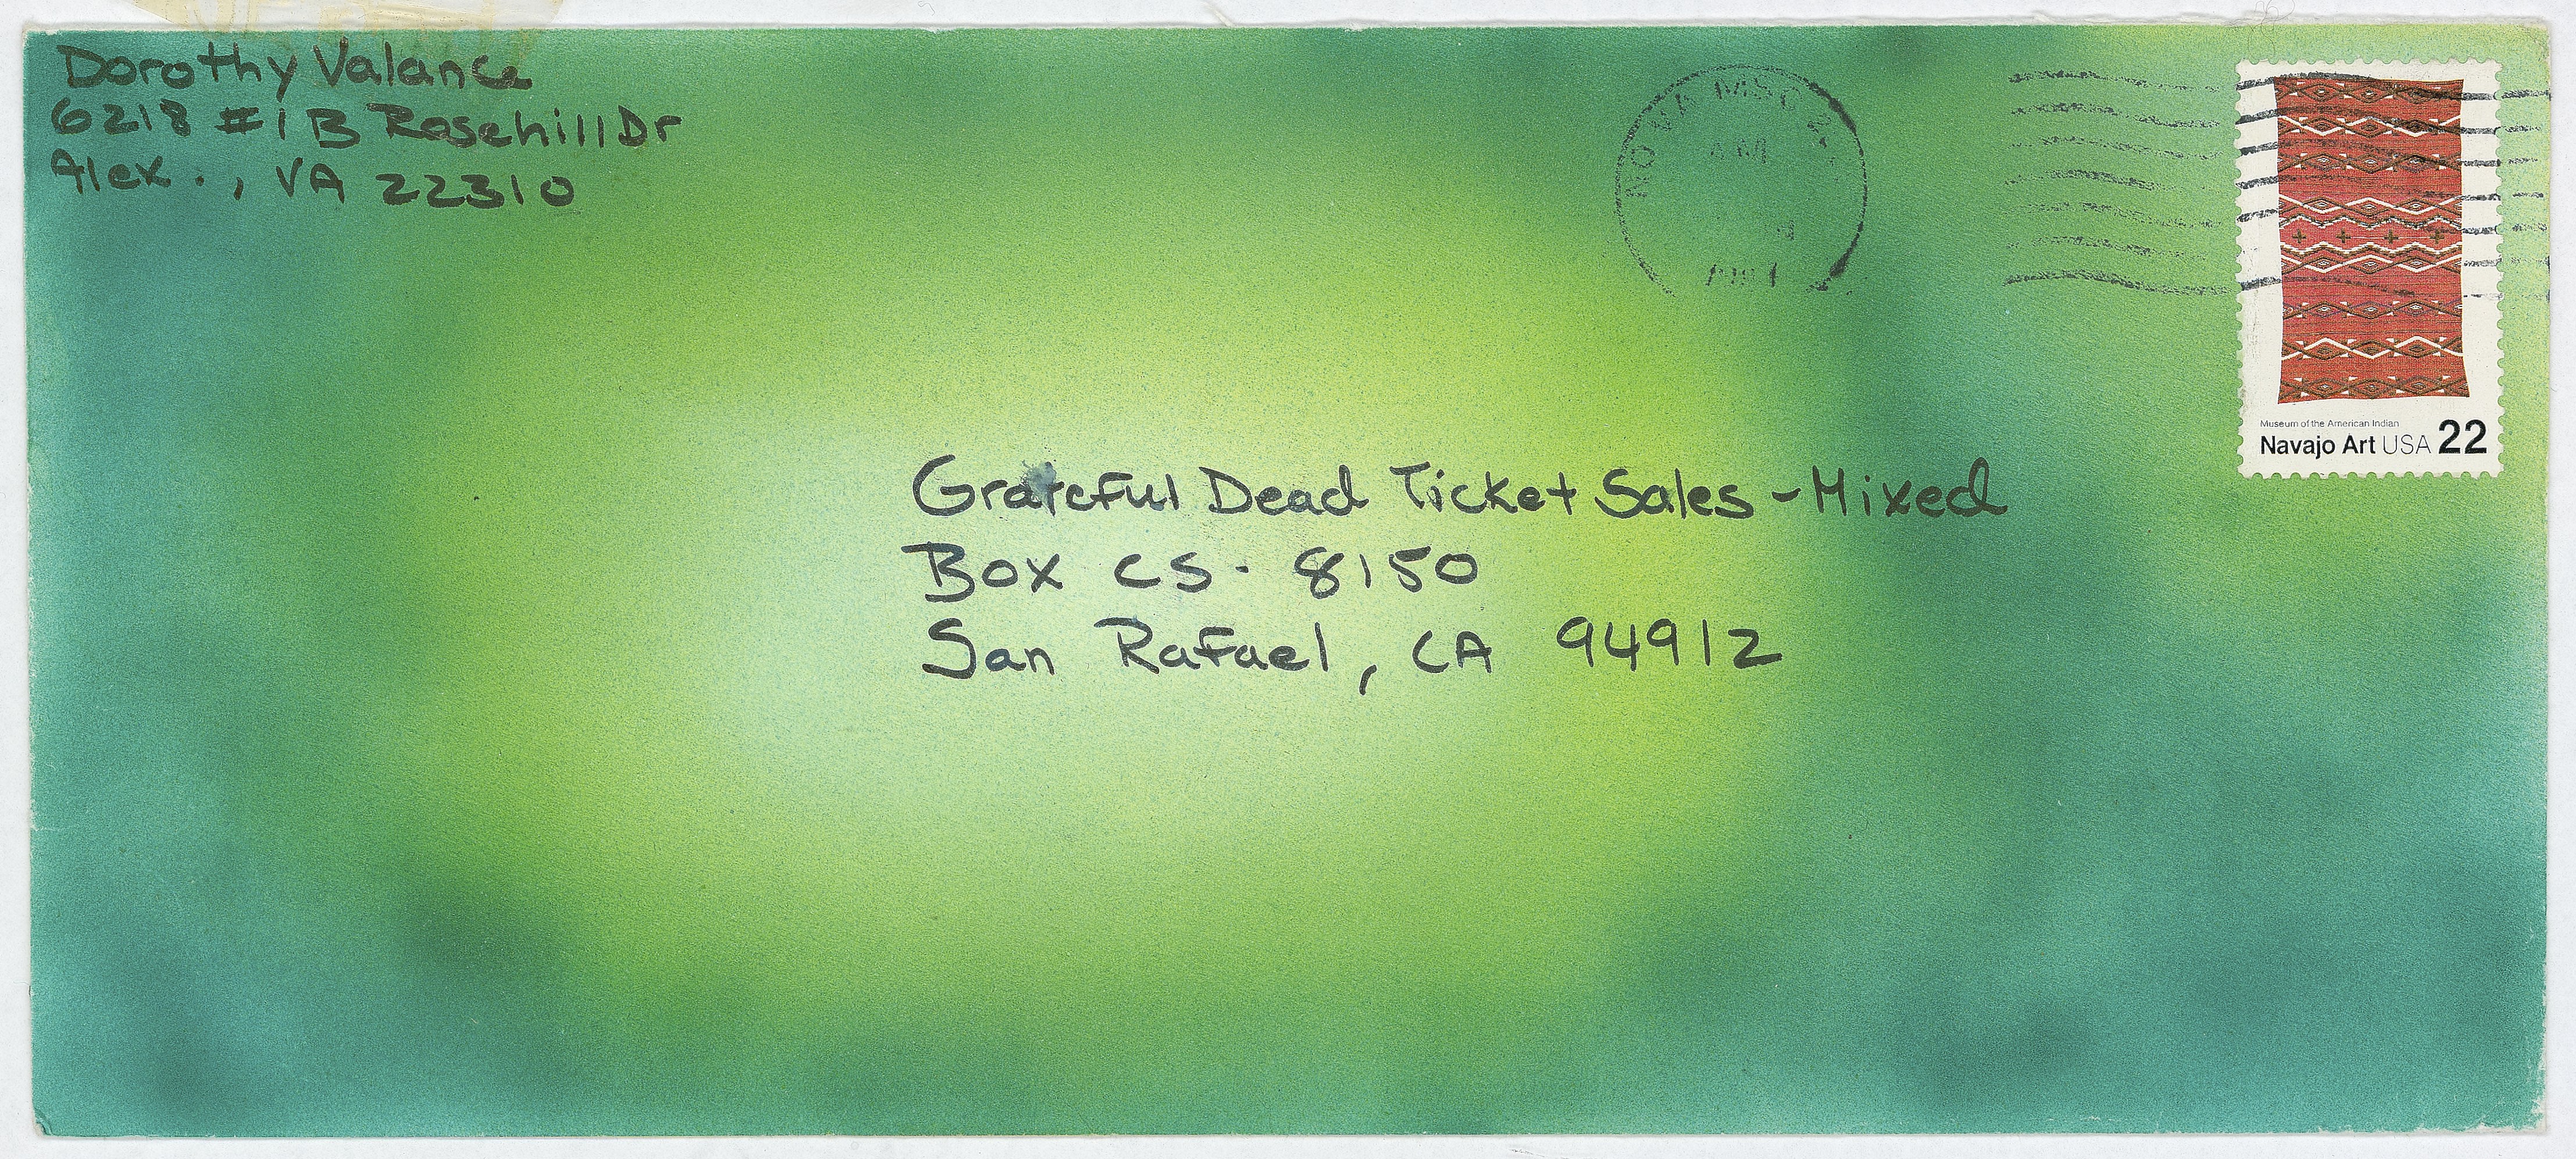 Dorothy Valance
6218 #1B Rosehill Dr
Alex., VA 22310
NO VA MSC
AM
Museum of the American Indian
Navajo Art USA 22
Grateful Dead Ticket Sales - Mixed
Box CS. 8150
San Rafael, CA 94912